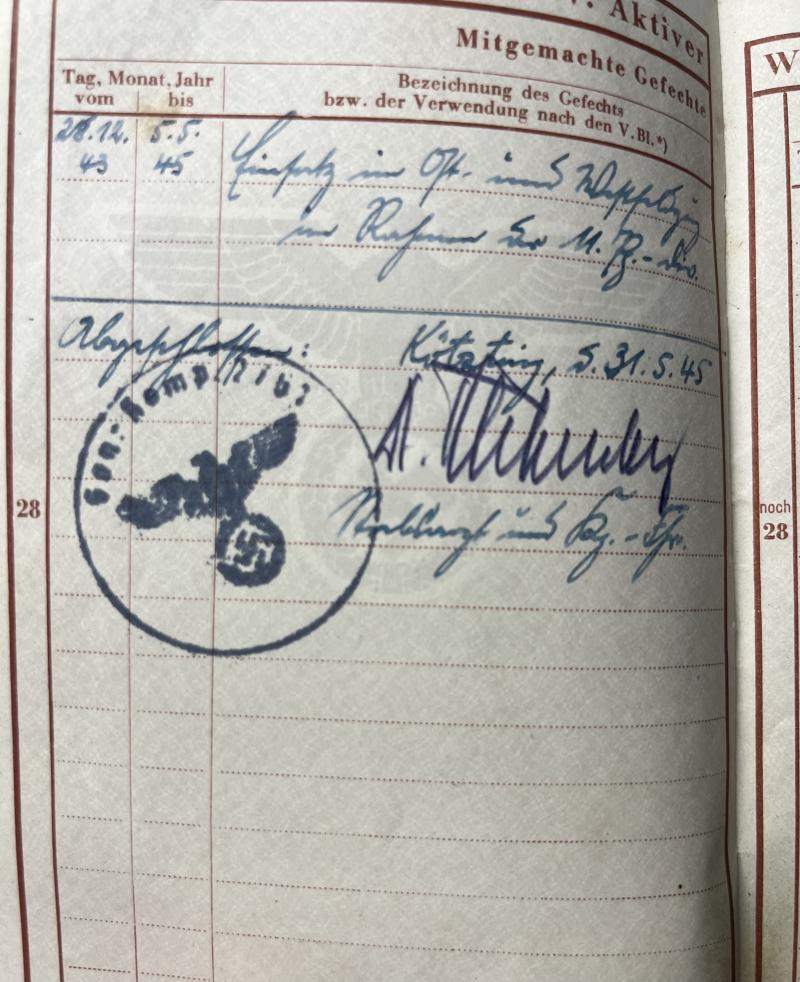 V. Aktiver
Mitgemachte Gefechte
Tag, Monat, Jahr
vom bis
Bezeichnung des Gefechts
bzw. der Verwendung nach den V.Bl.*)
28.12. 5.5.
43 45
Einsatz im Ost- und Westfeldzug
im Rahmen der 11. Pz.-Div.
Abgeschlossen: Kötzting, d. 31.5.45
San.-Komp.
Stabsarzt und Kp.-Fhr.
28
W
noch
28